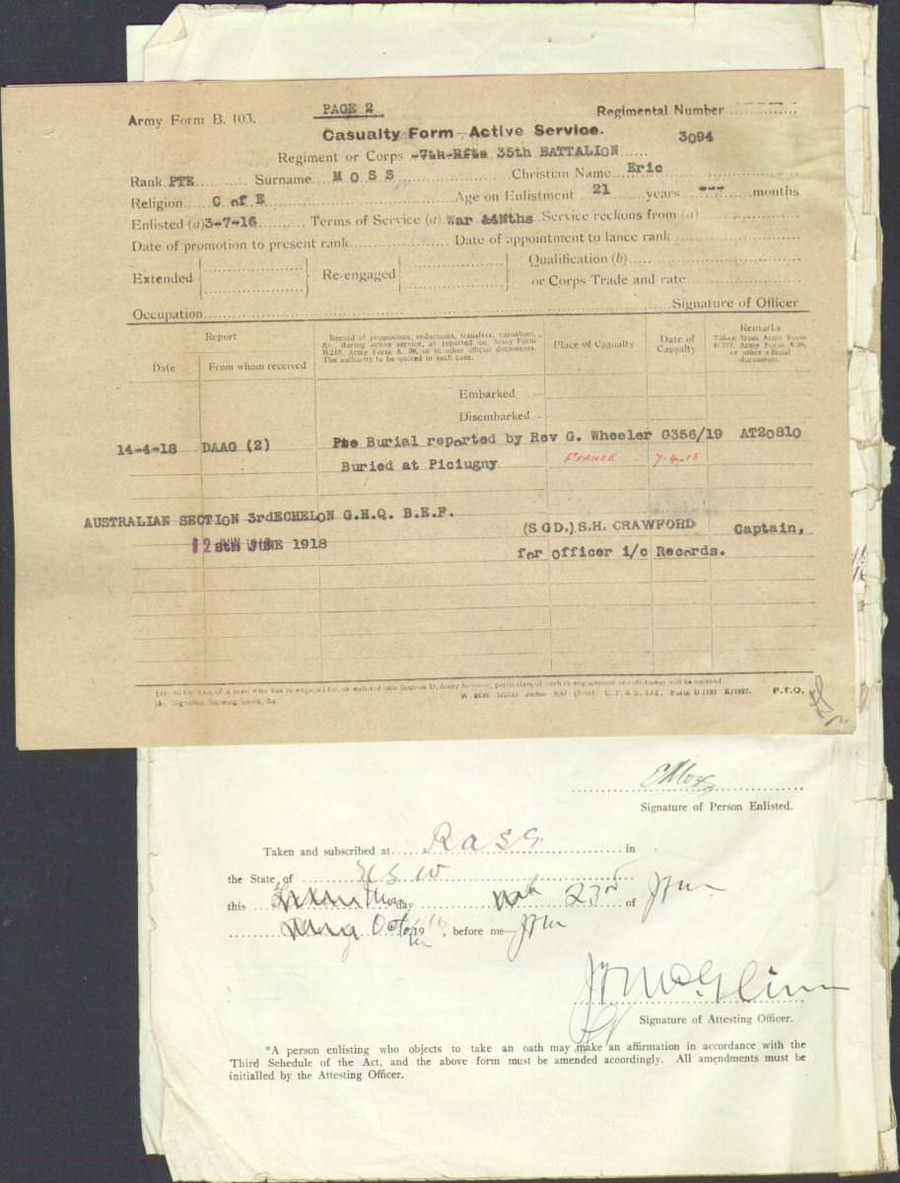 PAGE 2
Army Form B. 103.
Regimental Number
Casualty Form—Active Service.
3094
Regiment or Corps 7th Rfts 35th BATTALION
Rank PTE Surname M O S S Christian Name Eric
Religion C of E Age on Enlistment 21 years --- months
Enlisted (a) 3-7-16 Terms of Service (a) War &4Mths Service reckons from (a)
Date of promotion to present rank Date of appointment to lance rank
Extended Re-engaged Qualification (b)
or Corps Trade and rate
Occupation Signature of Officer
Report
Date From whom received
Record of promotions, reductions, transfers, casualties, &c., during active service, as reported on Army Form B.213, Army Form A. 36, or in other official documents. The authority to be quoted in each case.
Place of Casualty
Date of Casualty
Remarks
Taken from Army Form B.213, Army Form A.36, or other official documents.
Embarked
Disembarked
14-4-18 DAAG (2) Pte Burial reported by Rev G. Wheeler G356/19 AT20810
Buried at Piciugny FRANCE 7-4-18
AUSTRALIAN SECTION 3rdECHELON G.H.Q. B.E.F.
(SGD.) S.H. CRAWFORD Captain,
8th JUNE 1918
for Officer i/c Records.
P.T.O.
E Moss
Signature of Person Enlisted.
Taken and subscribed at R A S G in
the State of N S W
this day 23rd of
Oct 1916, before me
Signature of Attesting Officer.
*A person enlisting who objects to take an oath may make an affirmation in accordance with the
Third Schedule of the Act, and the above form must be amended accordingly. All amendments must be
initialled by the Attesting Officer.